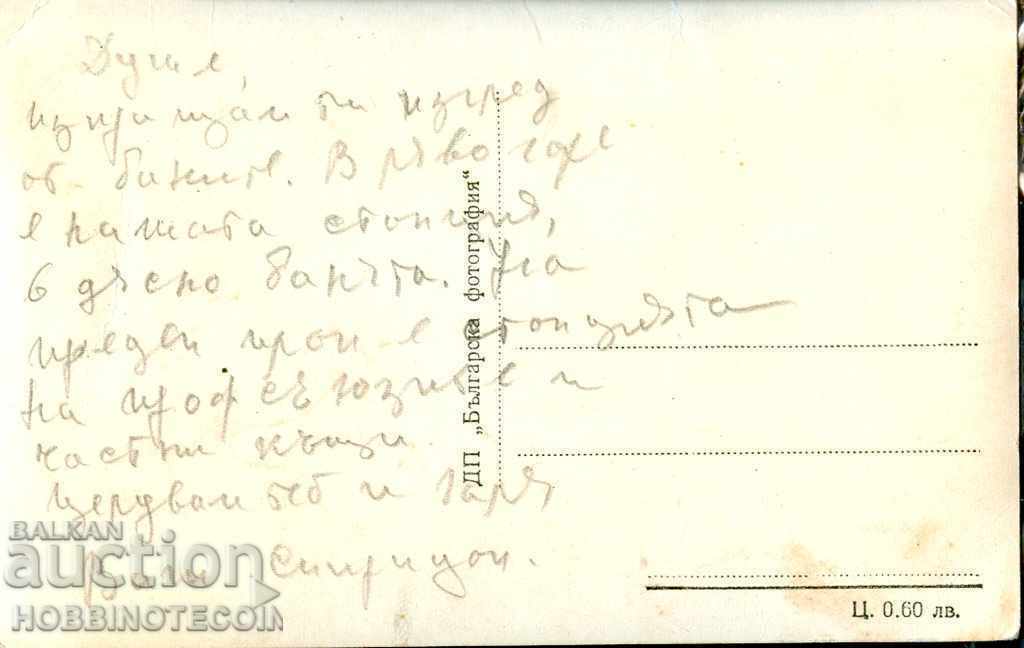 Душе,
изпращам ти изглед
от баните. В ляво горе
е нашата станция,
в дясно банята. На
преден план е станцията
на профсъюзите и
частни къщи.
Целувам теб и Заря
Ваш Спиридон.
ДП „Българска фотография“
Ц. 0.60 лв.
BALKAN
auction
HOBBINOTECOIN